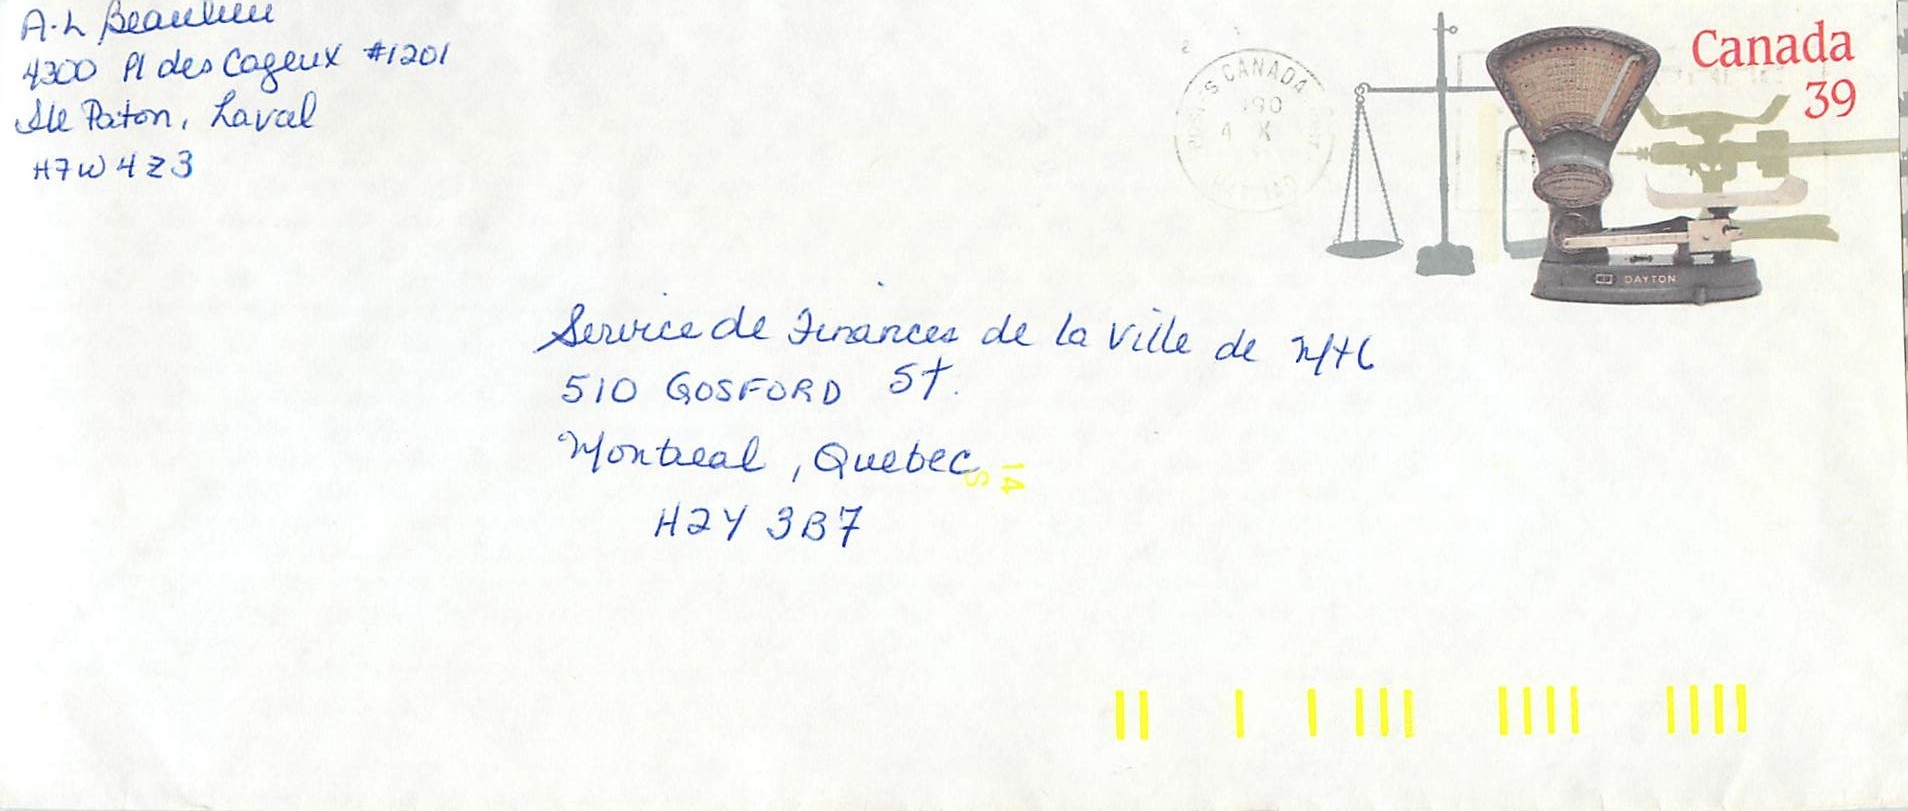 A-L Beaulieu
4300 Pl des Cageux #1201
Ile Paton, Laval
H7W 4Z3
CANADA
Canada
39
DAYTON
Service de Finances de la Ville de Mtl
510 GOSFORD St.
Montreal, Quebec
H2Y 3B7
14
S